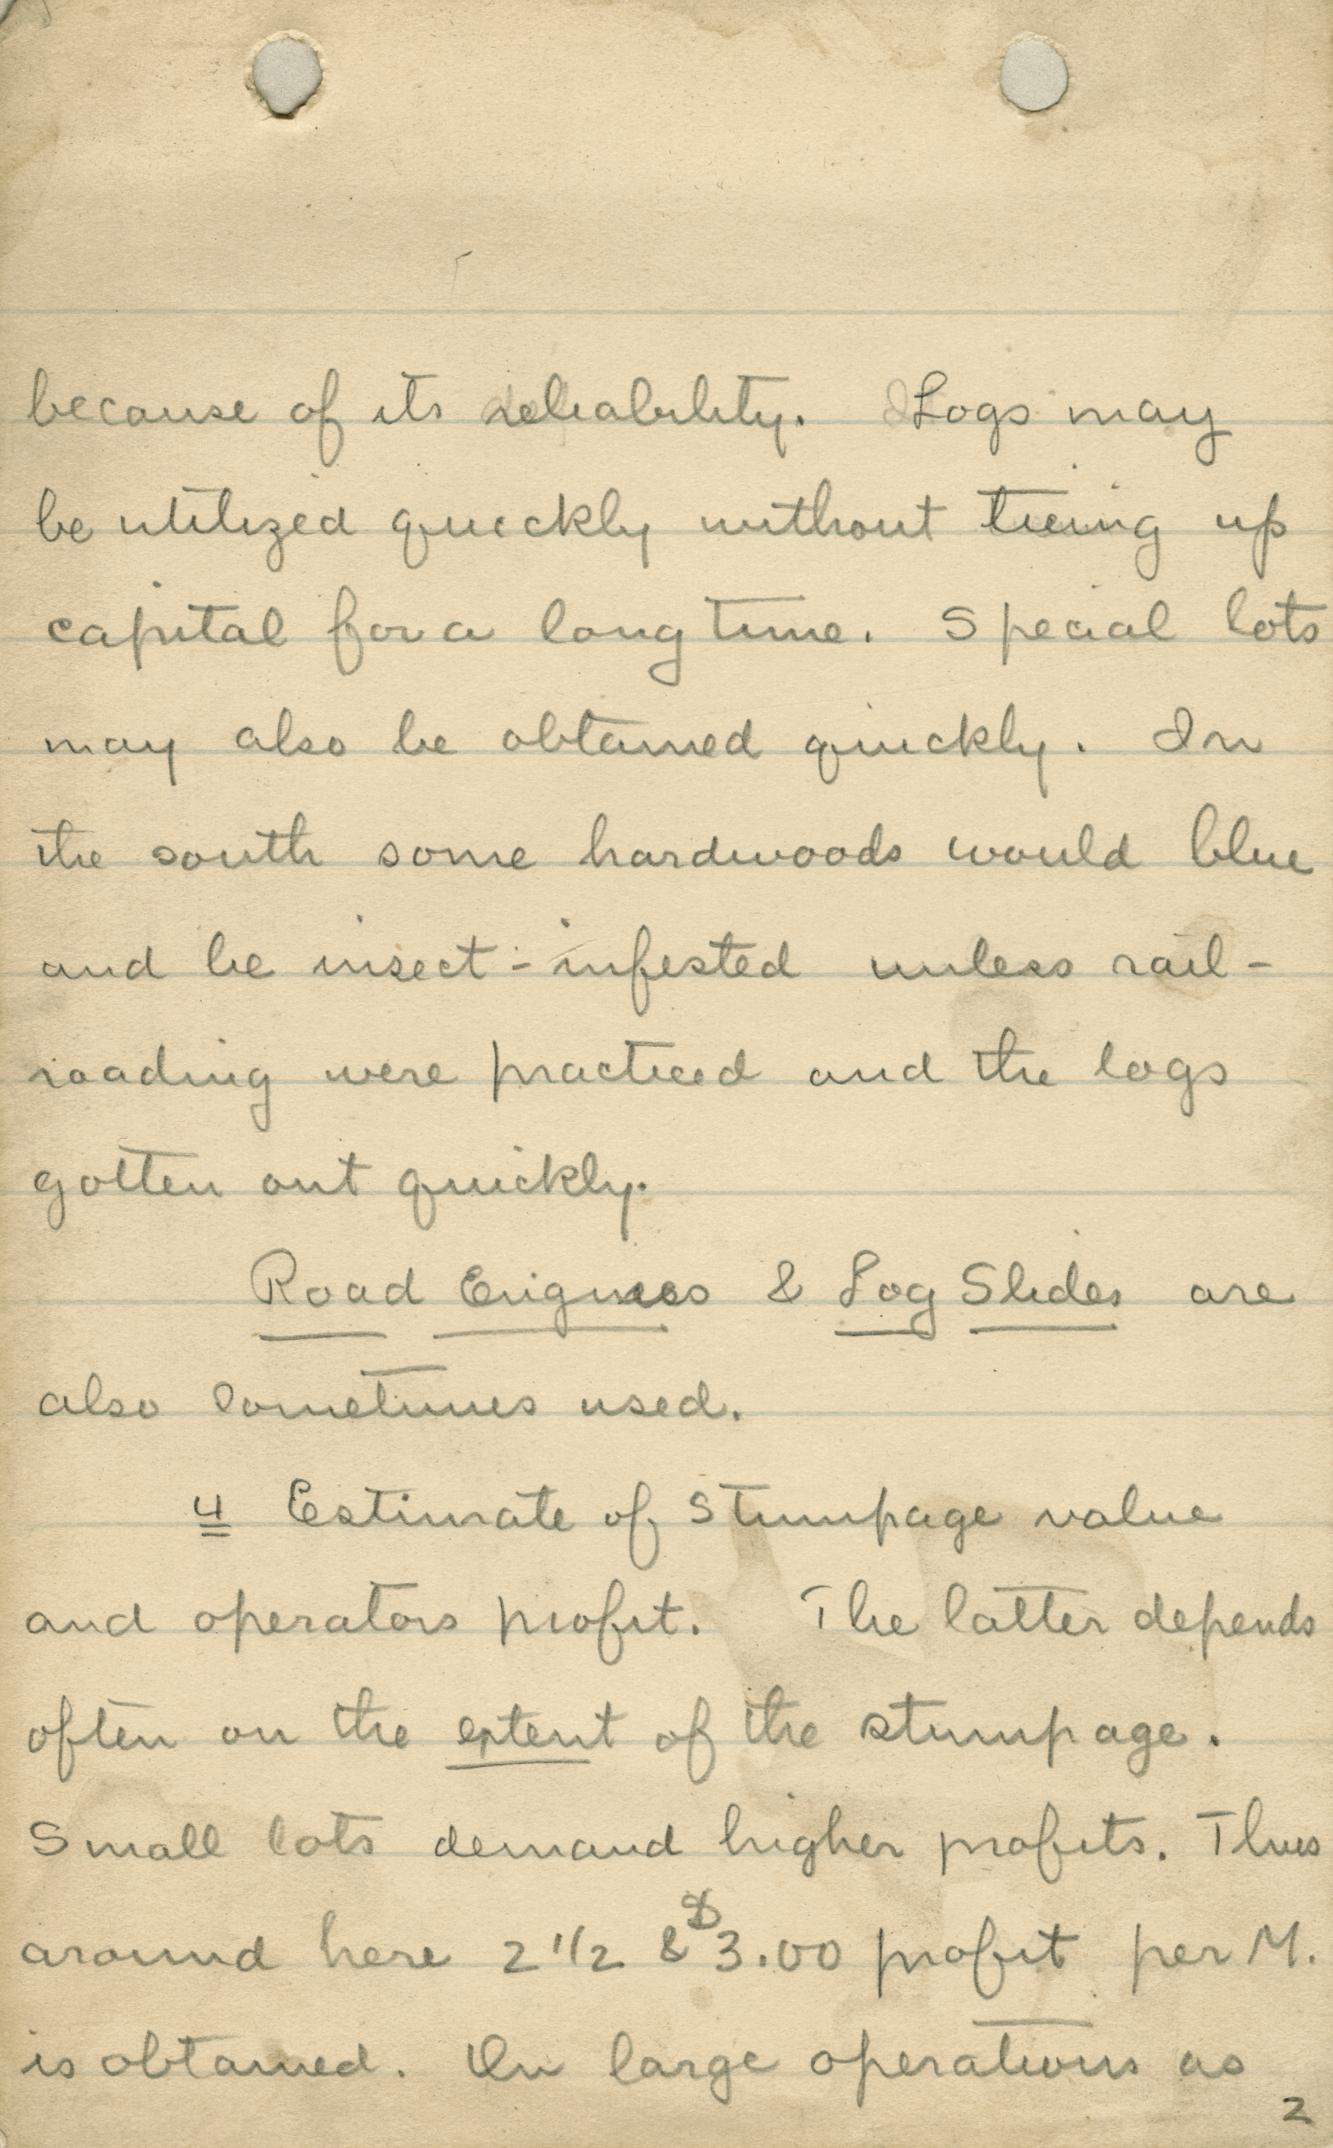 because of its reliability. Logs may
be utilized quickly without tieing up
capital for a long time. Special lots
may also be obtained quickly. In
the south some hardwoods would blue
and be insect-infested unless rail-
roading were practiced and the logs
gotten out quickly.
Road Engines & Log Slides are
also sometimes used.
4 Estimate of Stumpage value
and operators profit. The latter depends
often on the extent of the stumpage.
Small lots demand higher profits. Thus
around here 2 1/2 & $3.00 profit per M.
is obtained. On large operations as
2